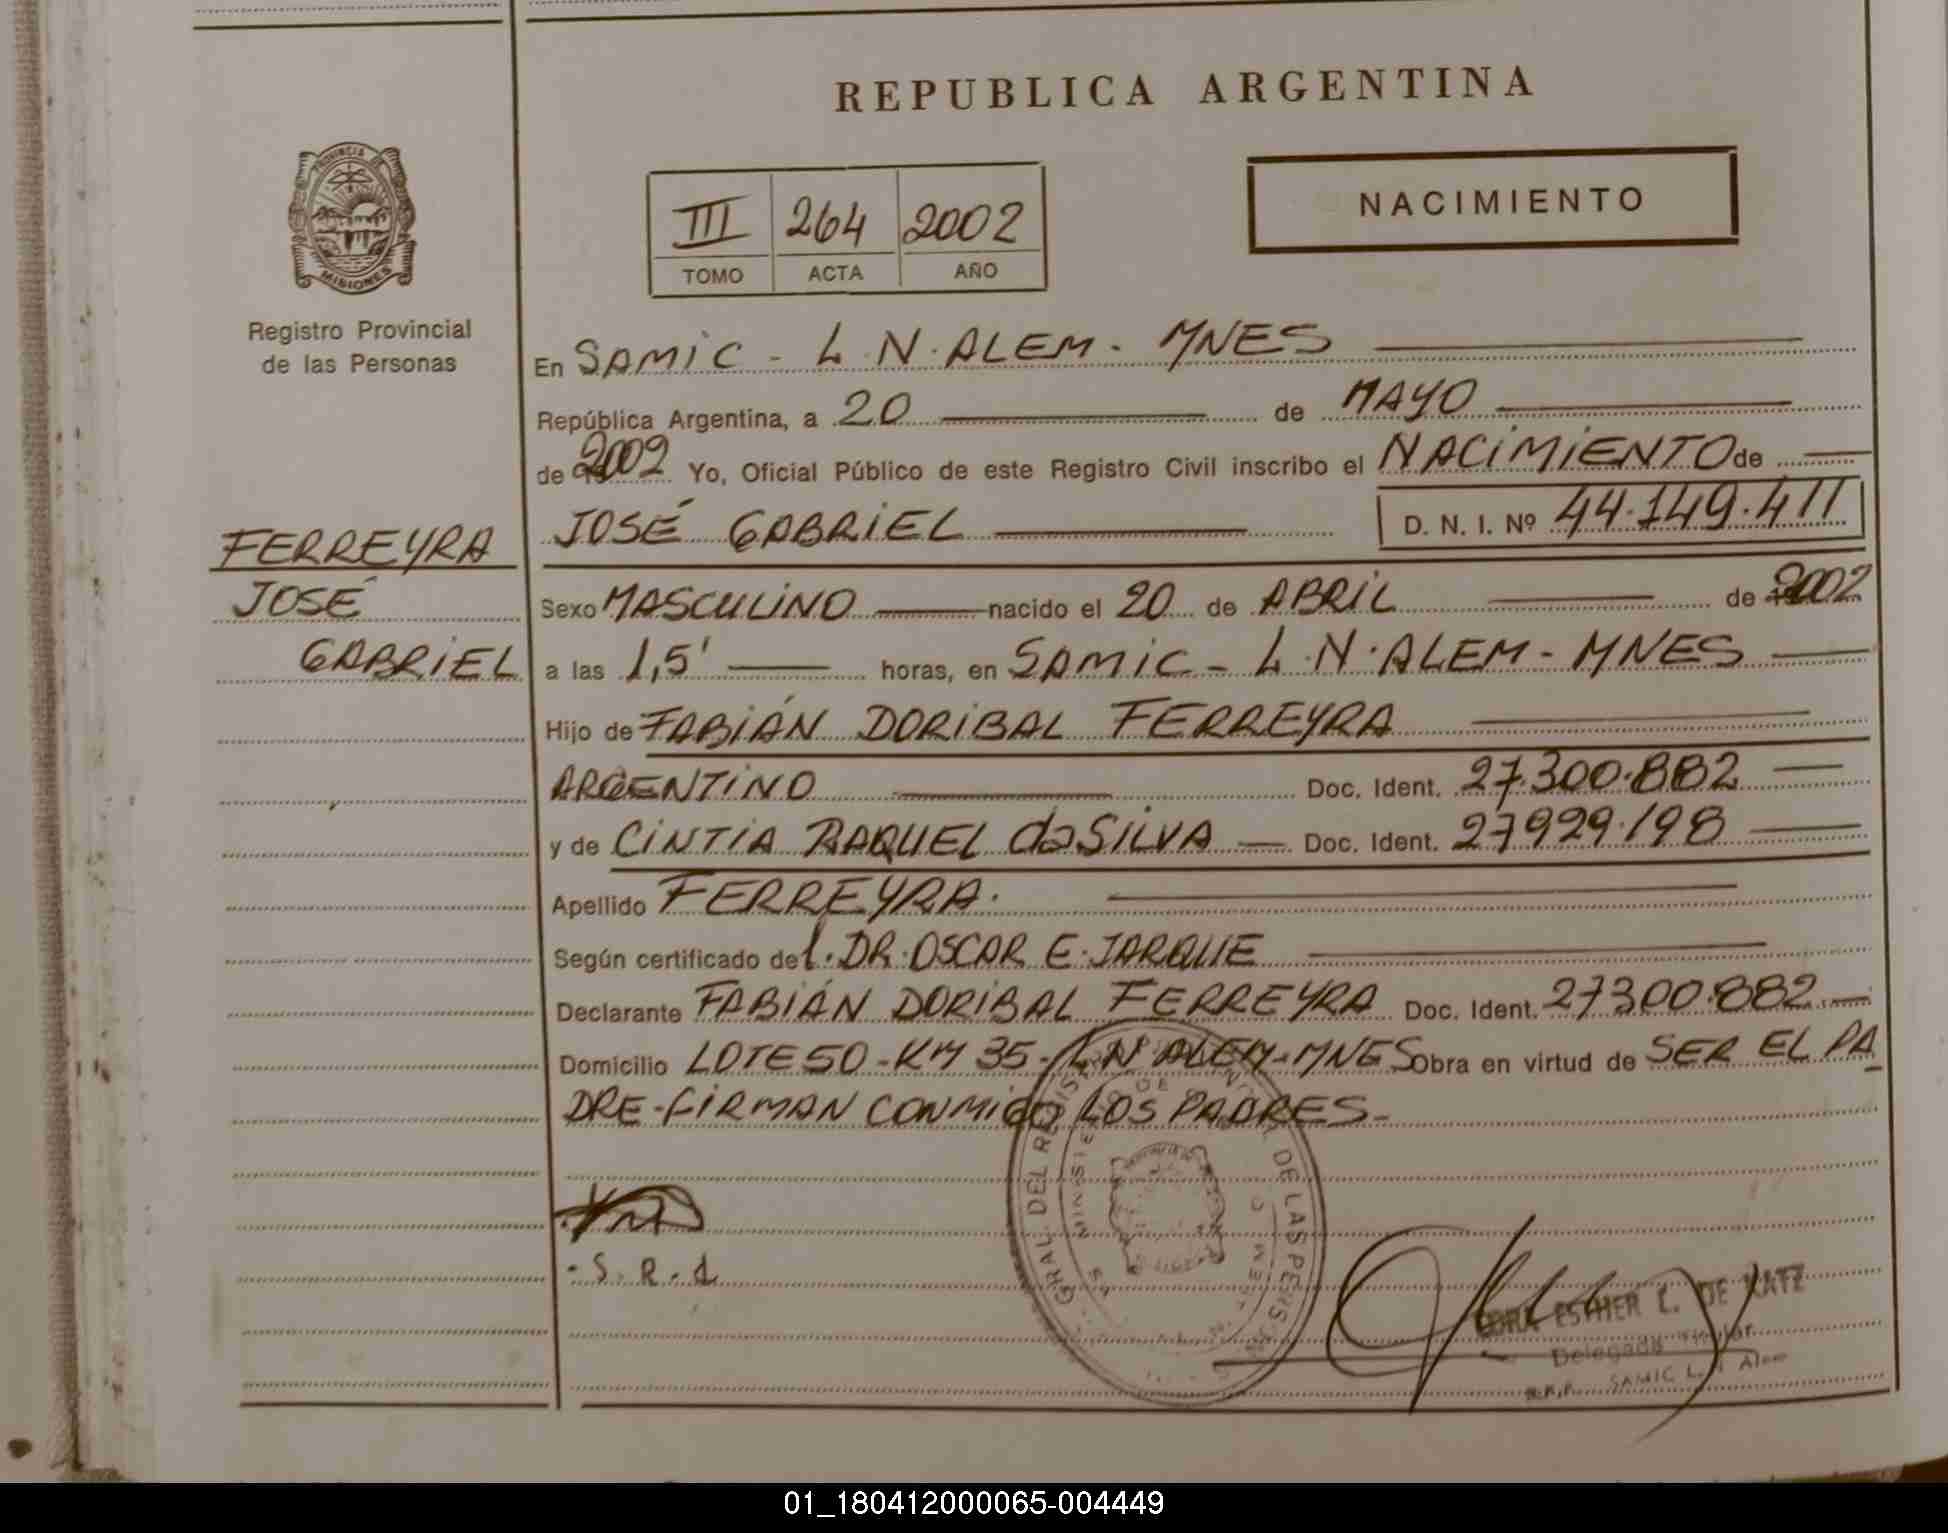 REPUBLICA ARGENTINA
PROVINCIA DE
MISIONES
Registro Provincial
de las Personas
III 264 2002
TOMO ACTA AÑO
NACIMIENTO
En SAMIC - L.N. ALEM - MNES
República Argentina, a 20 de MAYO
de 2002 Yo, Oficial Público de este Registro Civil inscribo el NACIMIENTO de
JOSÉ GABRIEL D. N. I. Nº 44.149.411
FERREYRA
JOSÉ
GABRIEL
Sexo MASCULINO nacido el 20 de ABRIL de 2002
a las 1,5' horas, en SAMIC - L.N. ALEM - MNES
Hijo de FABIÁN DORIBAL FERREYRA
ARGENTINO Doc. Ident. 27.300.882
y de CINTIA RAQUEL da SILVA Doc. Ident. 27929.198
Apellido FERREYRA.
Según certificado del. DR. OSCAR E. JARQUE
Declarante FABIÁN DORIBAL FERREYRA Doc. Ident. 27300.882
Domicilio LOTE 50 - KM 35 - L N ALEM - MNES Obra en virtud de SER EL PA
DRE - FIRMAN CONMIGO LOS PADRES -
S. R. d
GRAL. DEL REGIS DE LAS PERS
ESTHER L. DE KATZ
Delegada Titular
SAMIC L. N Alem
01_180412000065-004449